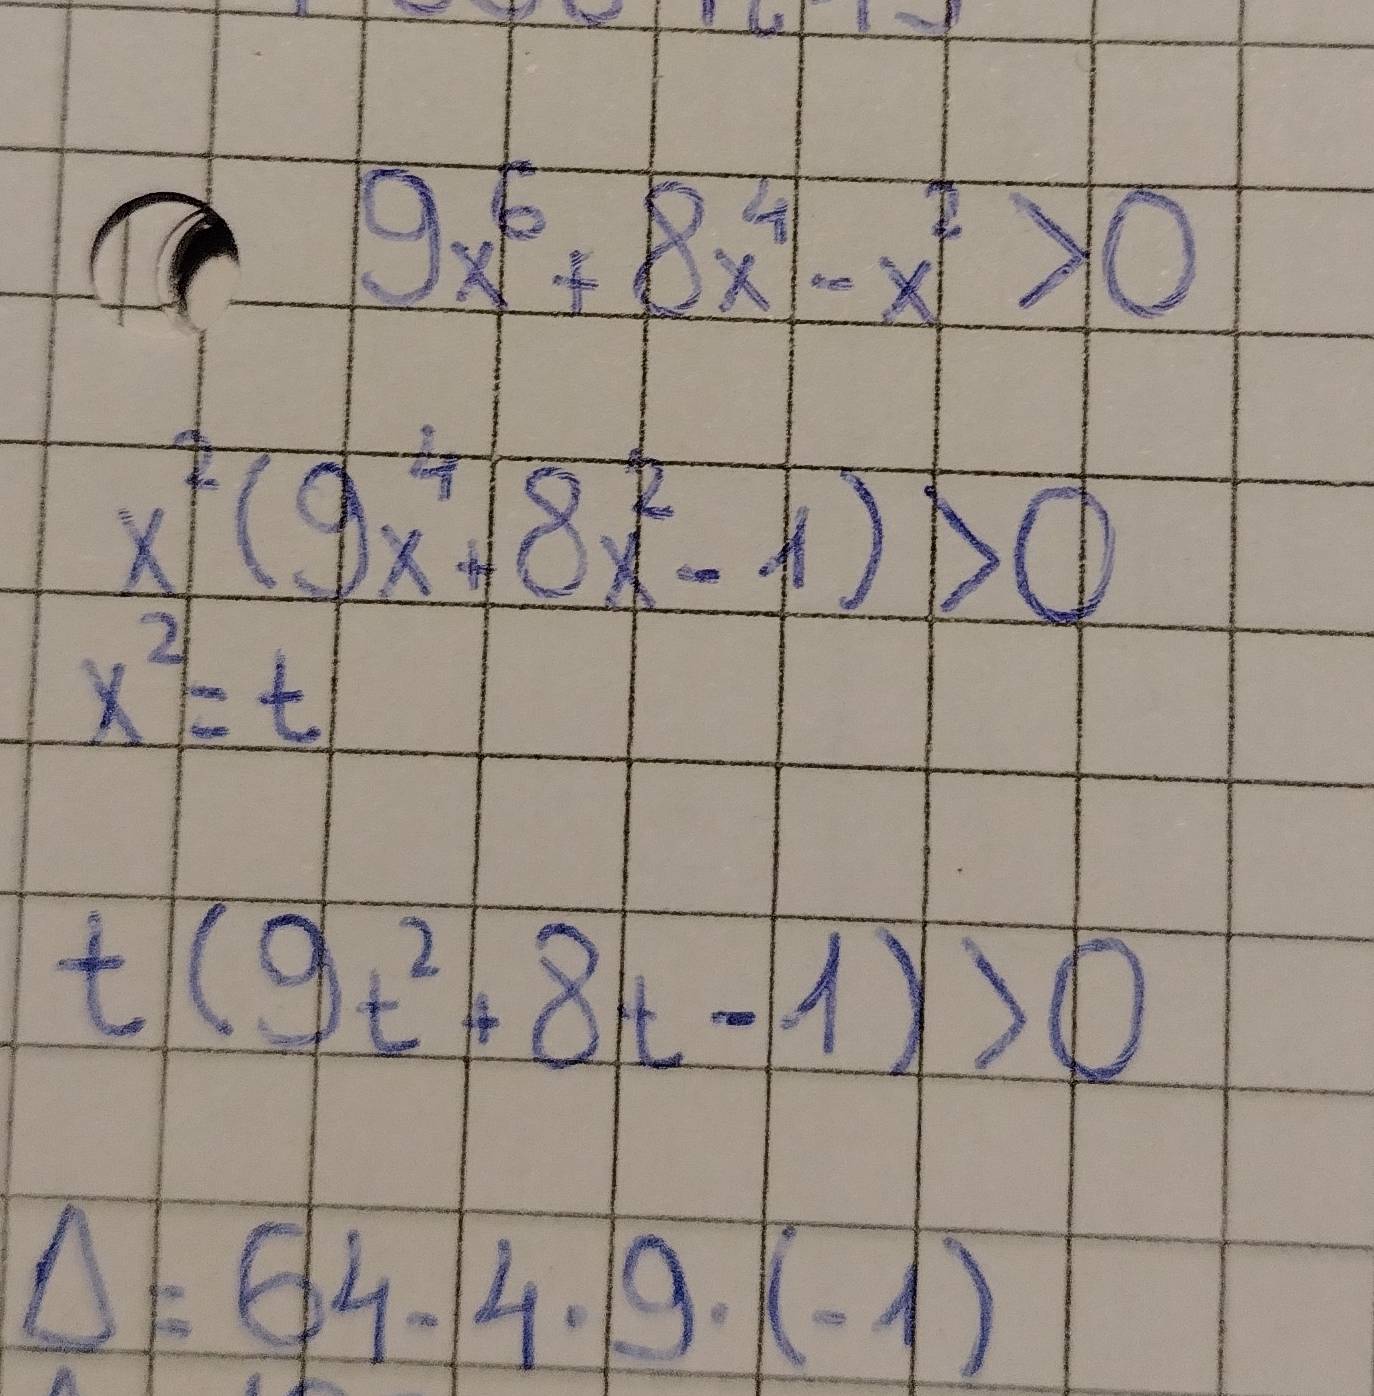 9x⁶ + 8x⁴ - x² > 0
x²(9x⁴ + 8x² - 1) > 0
x² = t
t(9t² + 8t - 1) > 0
Δ = 64 - 4 · 9 · (-1)